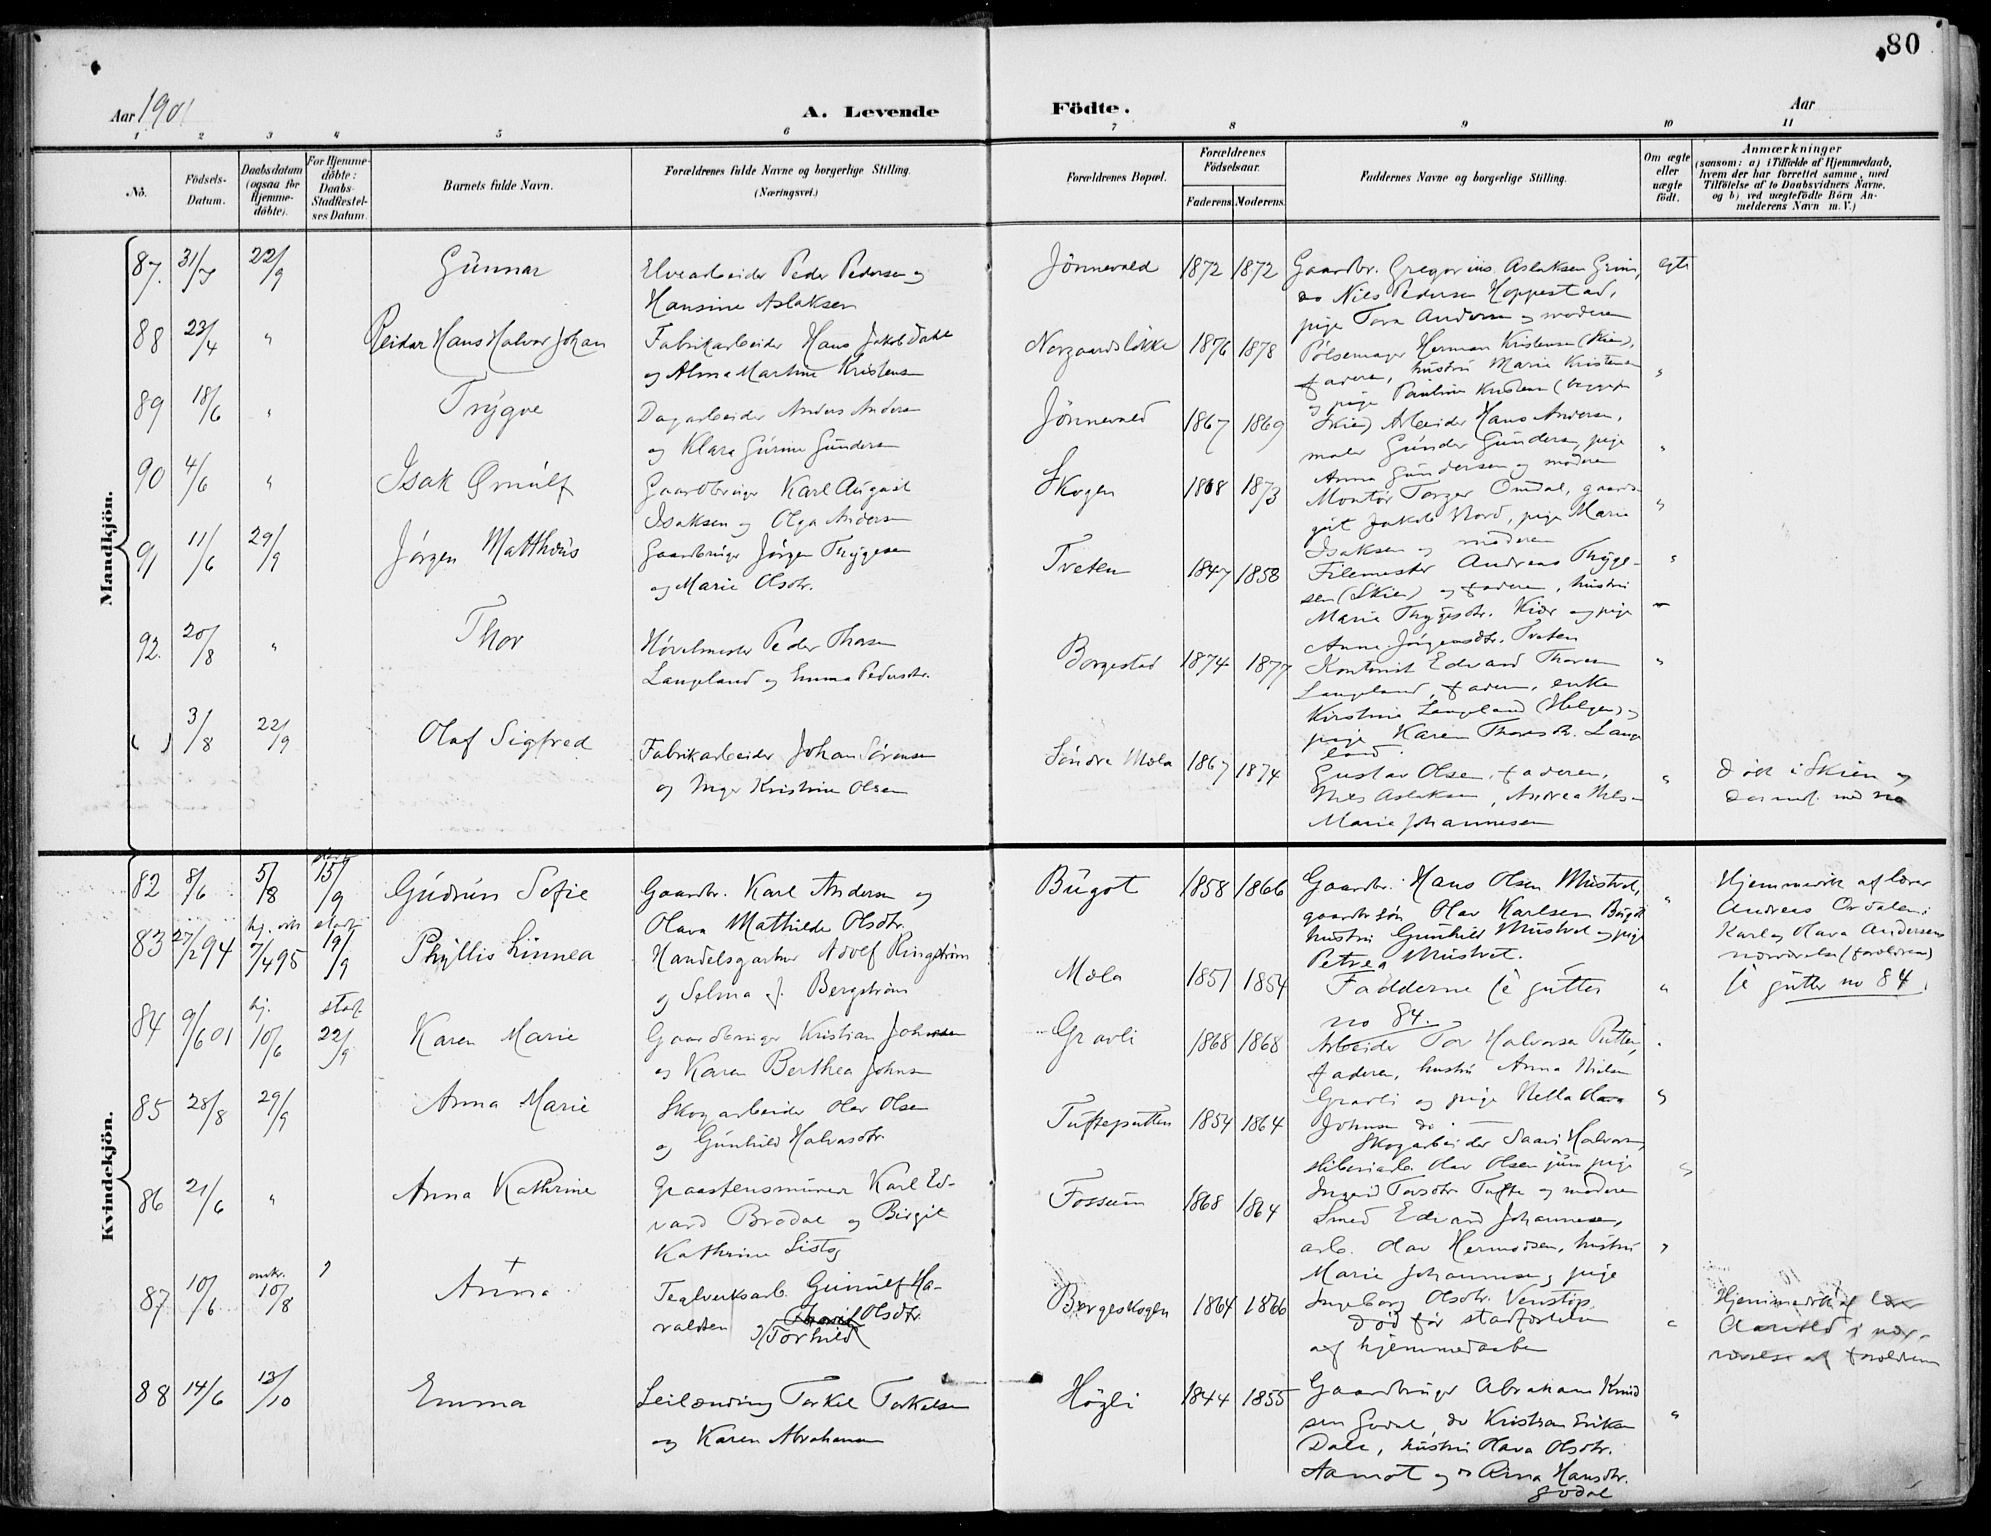 80
Aar 1901
A. Levende Födte.
Aar
1 2 3 4 5 6 7 8 9 10 11
No.
Födsels-Datum.
Daabsdatum (ogsaa for Hjemme-döbte).
For Hjemme-döbte: Daabs-Stadfæstel-ses Datum.
Barnets fulde Navn.
Forældrenes fulde Navne og borgerlige Stilling. (Næringsvei.)
Forældrenes Bopæl.
Forældrenes Födselsaar.
Faderens Moderens
Faddernes Navne og borgerlige Stilling.
Om ægte eller uægte födt.
Anmærkninger
(saasom: a) i Tilfælde af Hjemmedaab, hvem der har forrettet samme, med Tilföielse af to Daabsvidners Navne, og b) ved uægtefödte Börn An-melderens Navn m. V.)
Mandkjön.
87. 31/7 22/9 Gunnar
Elvearbeider Peder Pedersen og
Hansine Aslaksen
Jönnevald 1872 1872
Gaardbr. Gregorius Aslaksen Grini,
do Nils Pedersen Hoppestad,
pige Tora Andersen og moderen
egte
88 23/4 " Reidar Hans Halvor Johan
Fabrikarbeider Hans Jakob Dahl
og Alma Martine Kristensen
Norgaardsløkke 1876 1878
Pølsemager Herman Kristensen (Skien),
faderen, hustru Marie Kristensen
og pige Pauline Kristensen (begge
"
89 18/6 " Trygve
Dagarbeider Anders Andersen
og Klara Gurine Gundersen
Jönnevald 1867 1869
Skien) Arbeider Hans Andersen,
maler Gunder Gundersen, pige
Anna Gundersen og moderen
"
90 4/6 " Isak Ørnulf
Gaardbruger Karl August
Isaksen og Olga Andersen
Skogen 1868 1873
Montör Torger Omdal, gaard-
gut Jakob Nord, pige Marie
Isaksen og moderen
"
91 11/6 29/9 Jørgen Matthæus
Gaardbruger Jörgen Thygesen
og Marie Olsdtr.
Tveten 1847 1858
Filemester Andreas Thyge-
sen (Skien) og faderen, hustru
Marie Thygesdtr. Kiær og pige
Anne Jörgensdtr. Tveten
"
92. 20/8 " Thor
Hövelmester Peder Thorsen
Langeland og Emma Pedersdtr.
Borgestad 1874 1877
Kontorist Edvard Thorsen
Langeland, faderen, enke
Kirstine Langeland (Helgen) og
pige Karen Thorsdtr. Lange
land.
"
( ) 3/8 22/9 Olaf Sigfred
Fabrikarbeider Johan Sörensen
og Inger Kristine Olsen
Söndre Mæla 1867 1874
Gustav Olsen, faderen,
Nils Aslaksen, Andrea Nilsen
Marie Johannesen
"
Døbt i Skien og
der indf. med no
Kvindekjön.
82 8/6 5/8 15/9 Gudrun Sofie
Gaardbr. Karl Andersen og
Olava Mathilde Olsdtr.
Bugot 1858 1866
Gaardbr. Hans Olsen Mustvet,
gaardbr.søn Olav Karlsen Bugot
hustru Gunhild Mustvet og pige
Petrea Mustvet.
"
Hjemmedöbt af lærer
Andreas Ordalen i
Karl og Olava Andersens
nærværelse (forældrene)
83 27/2 94 7/4 95 stadf. 19/9 Phyllis Linnea
Handelsgartner Adolf Ringström
og Selma J. Bergström
Mæla 1851 1854
Fadderne se gutter
no 84.
"
se gutter no 84.
84 9/6 01 hj. 10/6 stadf. 22/9 Karen Marie
Gaardbruger Kristian Johnsen
og Karen Berthea Johnsen
Gravli 1868 1868
Arbeider Tor Halvorsen Putten,
faderen, hustru Anna Nielsen
Gravli og pige Hella Hava
Johnsen do.
85 28/8 29/9 Anna Marie
Skogarbeider Olav Olsen
og Gunhild Halvorsdtr.
Tufteputten 1854 1864
Skogarbeider Saavi Halvorsen,
sliberiarb. Olav Olsen jun, pige
Ingeid Torsdtr. Tufte og moderen
"
86 21/6 " Anna Kathrine
Graastensmurer Karl Ed-
vard Brodal og Birgit
Kathrine Listog
Fossum 1868 1864
Smed Edvard Johannesen,
arb. Olav Hermodsen, hustru
Marie Johannesen, pige
Ingeborg Olsdtr. Venstöp.
"
87 10/6 omkr. 10/8 Anna +
Teglverksarb. Gunulf Ha-
raldsen og Torhild Olsdtr.
Bergeskogen 1864 1866
Död før stadfæstelsen
af hjemmedaaben
"
Hjemmedöbt af lærer
Aarvold i nær-
værelse af forældrene
88 14/6 13/10 Emma
Leilænding Torkel Torkelsen
og Karen Abrahamsen
Högli 1844 1855
Gaardbruger Abraham Knud
sen Godal, do Kristian Eriksen
Dale, hustru Olava Olsdtr.
Aamot og do Anna Hansdtr.
Godal
"